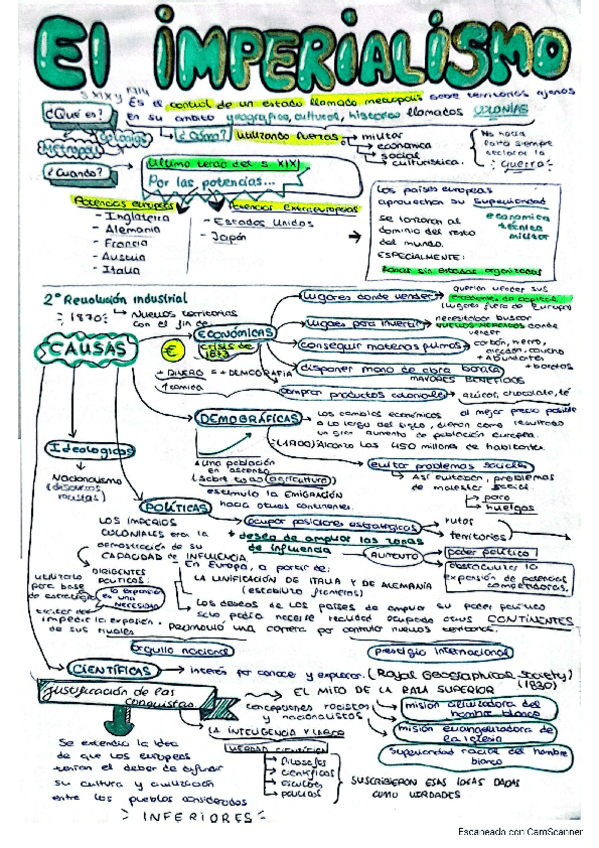 El IMPERIALISMO
S XIX y
¿Qué es?
Es el control de un estado llamado metropoli sobre territorios ajenos
en su ámbito geográfico, cultural, histórico llamados COLONIAS
Colonias
Metropoli
¿Cómo?
utilizando fuerzas
militar
económica
social
culturística.
No hacía
falta siempre
declarar la
guerra
¿Cuándo?
Último tercio del s XIX
Por las potencias...
Potencias europeas
- Inglaterra
- Alemania
- Francia
- Austria
- Italia
Potencias Extraeuropeas
- Estados Unidos
- Japón
Los países europeos
aprovechan su superioridad
económica
técnica
militar
se lanzaron al
dominio del resto
del mundo.
ESPECIALMENTE:
zonas sin estados organizados
2ª Revolución industrial
1870
Nuevos territorios
con el fin de
CAUSAS
€
ECONÓMICAS
Crisis de
1873
lugares donde vender
querían vender sus
excedentes de capital
(lugares fuera de Europa)
lugares para invertir
necesitaban buscar
nuevos mercados donde
vender
conseguir materias primas
carbón, hierro,
algodón, caucho
+ Abundantes
+ baratos
disponer mano de obra barata
MAYORES BENEFICIOS
+ DINERO = + DEMOGRAFIA
↑ comida
comprar productos coloniales
azúcar, chocolate, té
DEMOGRÁFICAS
Los cambios económicos
al mejor precio posible
a lo largo del siglo, dieron como resultado
un gran aumento de población europea.
(1900) Alcanzó los 450 millones de habitantes.
↑ Una población
en ascenso
(agricultura)
estimuló la EMIGRACIÓN
hacia otros continentes.
evitar problemas sociales
Así evitaban, problemas
de malestar social.
paro
huelgas
Ideológicos
Nacionalismo
(discursos
racistas)
POLÍTICAS
LOS IMPERIOS
COLONIALES era la
demostración de su
CAPACIDAD de INFLUENCIA.
ocupar posiciones estratégicas
rutas
territorios
+ deseo de ampliar las zonas
de influencia
AUMENTO
poder político
obstaculizar la
expansión de potencias
competidoras.
DIRIGENTES
POLÍTICOS:
la expansión
es una
NECESIDAD
utilizarlo
para base
de estrategia
En Europa, a partir de:
LA UNIFICACIÓN DE ITALIA Y DE ALEMANIA
(estabilizó fronteras)
Los deseos de los países de ampliar su poder político
solo podía hacerse realidad ocupando otros CONTINENTES
impedir la expansión
de sus rivales
Promovió una carrera por controlar nuevos territorios.
orgullo nacional
prestigio internacional
CIENTÍFICAS
interés por conocer y explorar. (Royal Geographical Society)
(1830)
Justificación de las
conquistas
EL MITO DE LA RAZA SUPERIOR
concepciones racistas
y nacionalistas
misión civilizadora del
hombre blanco
misión evangelizadora de
la iglesia
superioridad racial del hombre
blanco
LA INTELIGENCIA Y LABOR
VERDAD CIENTÍFICA
filósofos
científicos
escritores
políticos
SUSCRIBIERON ESAS IDEAS DADAS
COMO VERDADES
Se extendió la idea
de que los europeos
tenían el deber de difundir
su cultura y civilización
entre los pueblos considerados
INFERIORES
Escaneado con CamScanner